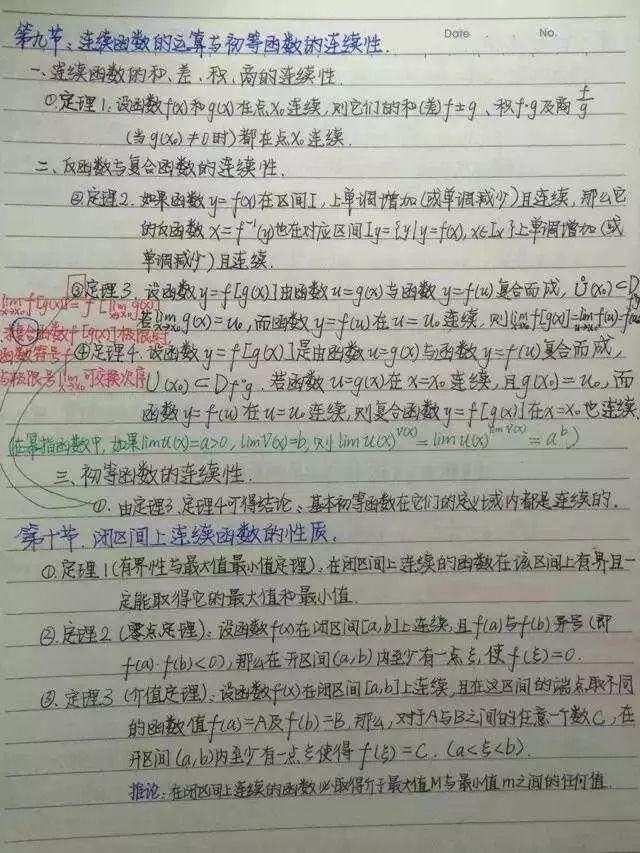 Date
No.
第九节、连续函数的运算与初等函数的连续性.
一、连续函数的和、差、积、商的连续性.
①定理1. 设函数f(x)和g(x)在点x₀连续, 则它们的和(差)f±g、积f·g及商f/g
(当g(x₀)≠0时)都在点x₀连续.
二、反函数与复合函数的连续性.
②定理2. 如果函数y=f(x)在区间Iₓ上单调增加(或单调减少)且连续, 那么它
的反函数x=f⁻¹(y)也在对应区间Iy={y|y=f(x), x∈Iₓ}上单调增加(或
单调减少)且连续.
③定理3. 设函数y=f[g(x)]由函数u=g(x)与函数y=f(u)复合而成, Ů(x₀)⊂D
lim x→x₀ f[g(x)]=f[lim x→x₀ g(x)]
若lim x→x₀ g(x)=u₀, 而函数y=f(u)在u=u₀连续, 则lim x→x₀ f[g(x)]=lim f(u)=f(u₀)
求复合函数f[g(x)]极限时
函数符号f
与极限号lim x→x₀可交换次序
④定理4. 设函数y=f[g(x)]是由函数u=g(x)与函数y=f(u)复合而成,
U(x₀)⊂Df∘g. 若函数u=g(x)在x=x₀连续, 且g(x₀)=u₀, 而
函数y=f(u)在u=u₀连续, 则复合函数y=f[g(x)]在x=x₀也连续.
(在幂指函数中, 如果lim u(x)=a>0, lim V(x)=b, 则lim u(x)^V(x)=lim u(x)^lim V(x)=a^b)
三、初等函数的连续性.
①. 由定理3、定理4可得结论: 基本初等函数在它们的定义域内都是连续的.
第十节、闭区间上连续函数的性质.
①. 定理1(有界性与最大值最小值定理): 在闭区间上连续的函数在该区间上有界且一
定能取得它的最大值和最小值.
②. 定理2 (零点定理): 设函数f(x)在闭区间[a,b]上连续, 且f(a)与f(b)异号(即
f(a)·f(b)<0), 那么在开区间(a,b)内至少有一点ξ, 使f(ξ)=0.
③. 定理3 (介值定理): 设函数f(x)在闭区间[a,b]上连续, 且在这区间的端点取不同
的函数值f(a)=A及f(b)=B, 那么, 对于A与B之间的任意一个数C, 在
开区间(a,b)内至少有一点ξ使得f(ξ)=C. (a<ξ<b).
推论: 在闭区间上连续的函数必取得介于最大值M与最小值m之间的任何值.